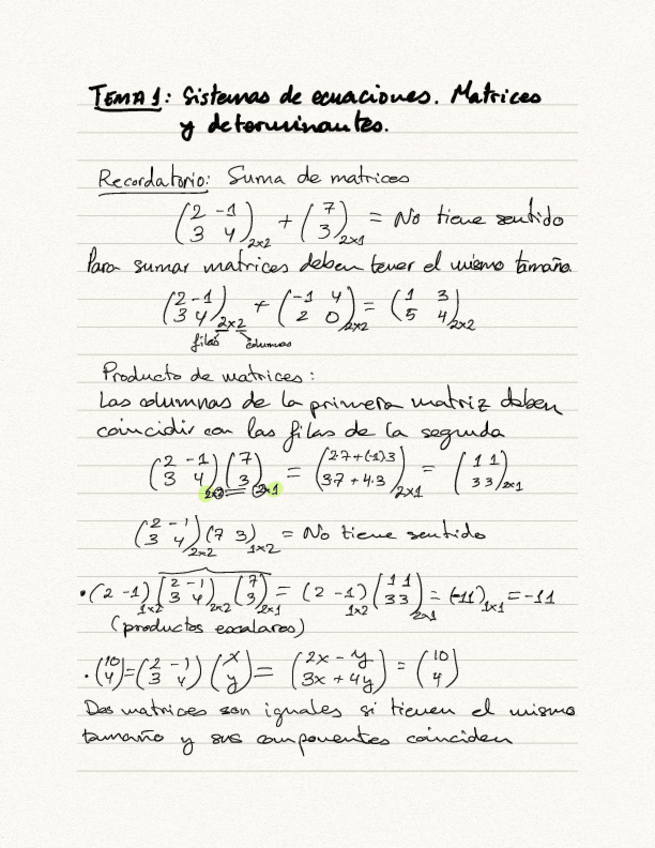 TEMA 1: Sistemas de ecuaciones. Matrices
y determinantes.
Recordatorio: Suma de matrices
(2 -1; 3 4)2x2 + (7; 3)2x1 = No tiene sentido
Para sumar matrices deben tener el mismo tamaño
(2 -1; 3 4)2x2 + (-1 4; 2 0)2x2 = (1 3; 5 4)2x2
filas columnas
Producto de matrices:
Las columnas de la primera matriz deben
coincidir con las filas de la segunda
(2 -1; 3 4)2x2 (7; 3)2x1 = (2·7+(-1)·3; 3·7+4·3)2x1 = (11; 33)2x1
(2 -1; 3 4)2x2 (7 3)1x2 = No tiene sentido
• (2 -1)1x2 (2 -1; 3 4)2x2 (7; 3)2x1 = (2 -1)1x2 (11; 33)2x1 = (-11)1x1 = -11
(productos escalares)
• (10; 4) = (2 -1; 3 4) (x; y) = (2x - y; 3x + 4y) = (10; 4)
Dos matrices son iguales si tienen el mismo
tamaño y sus componentes coinciden